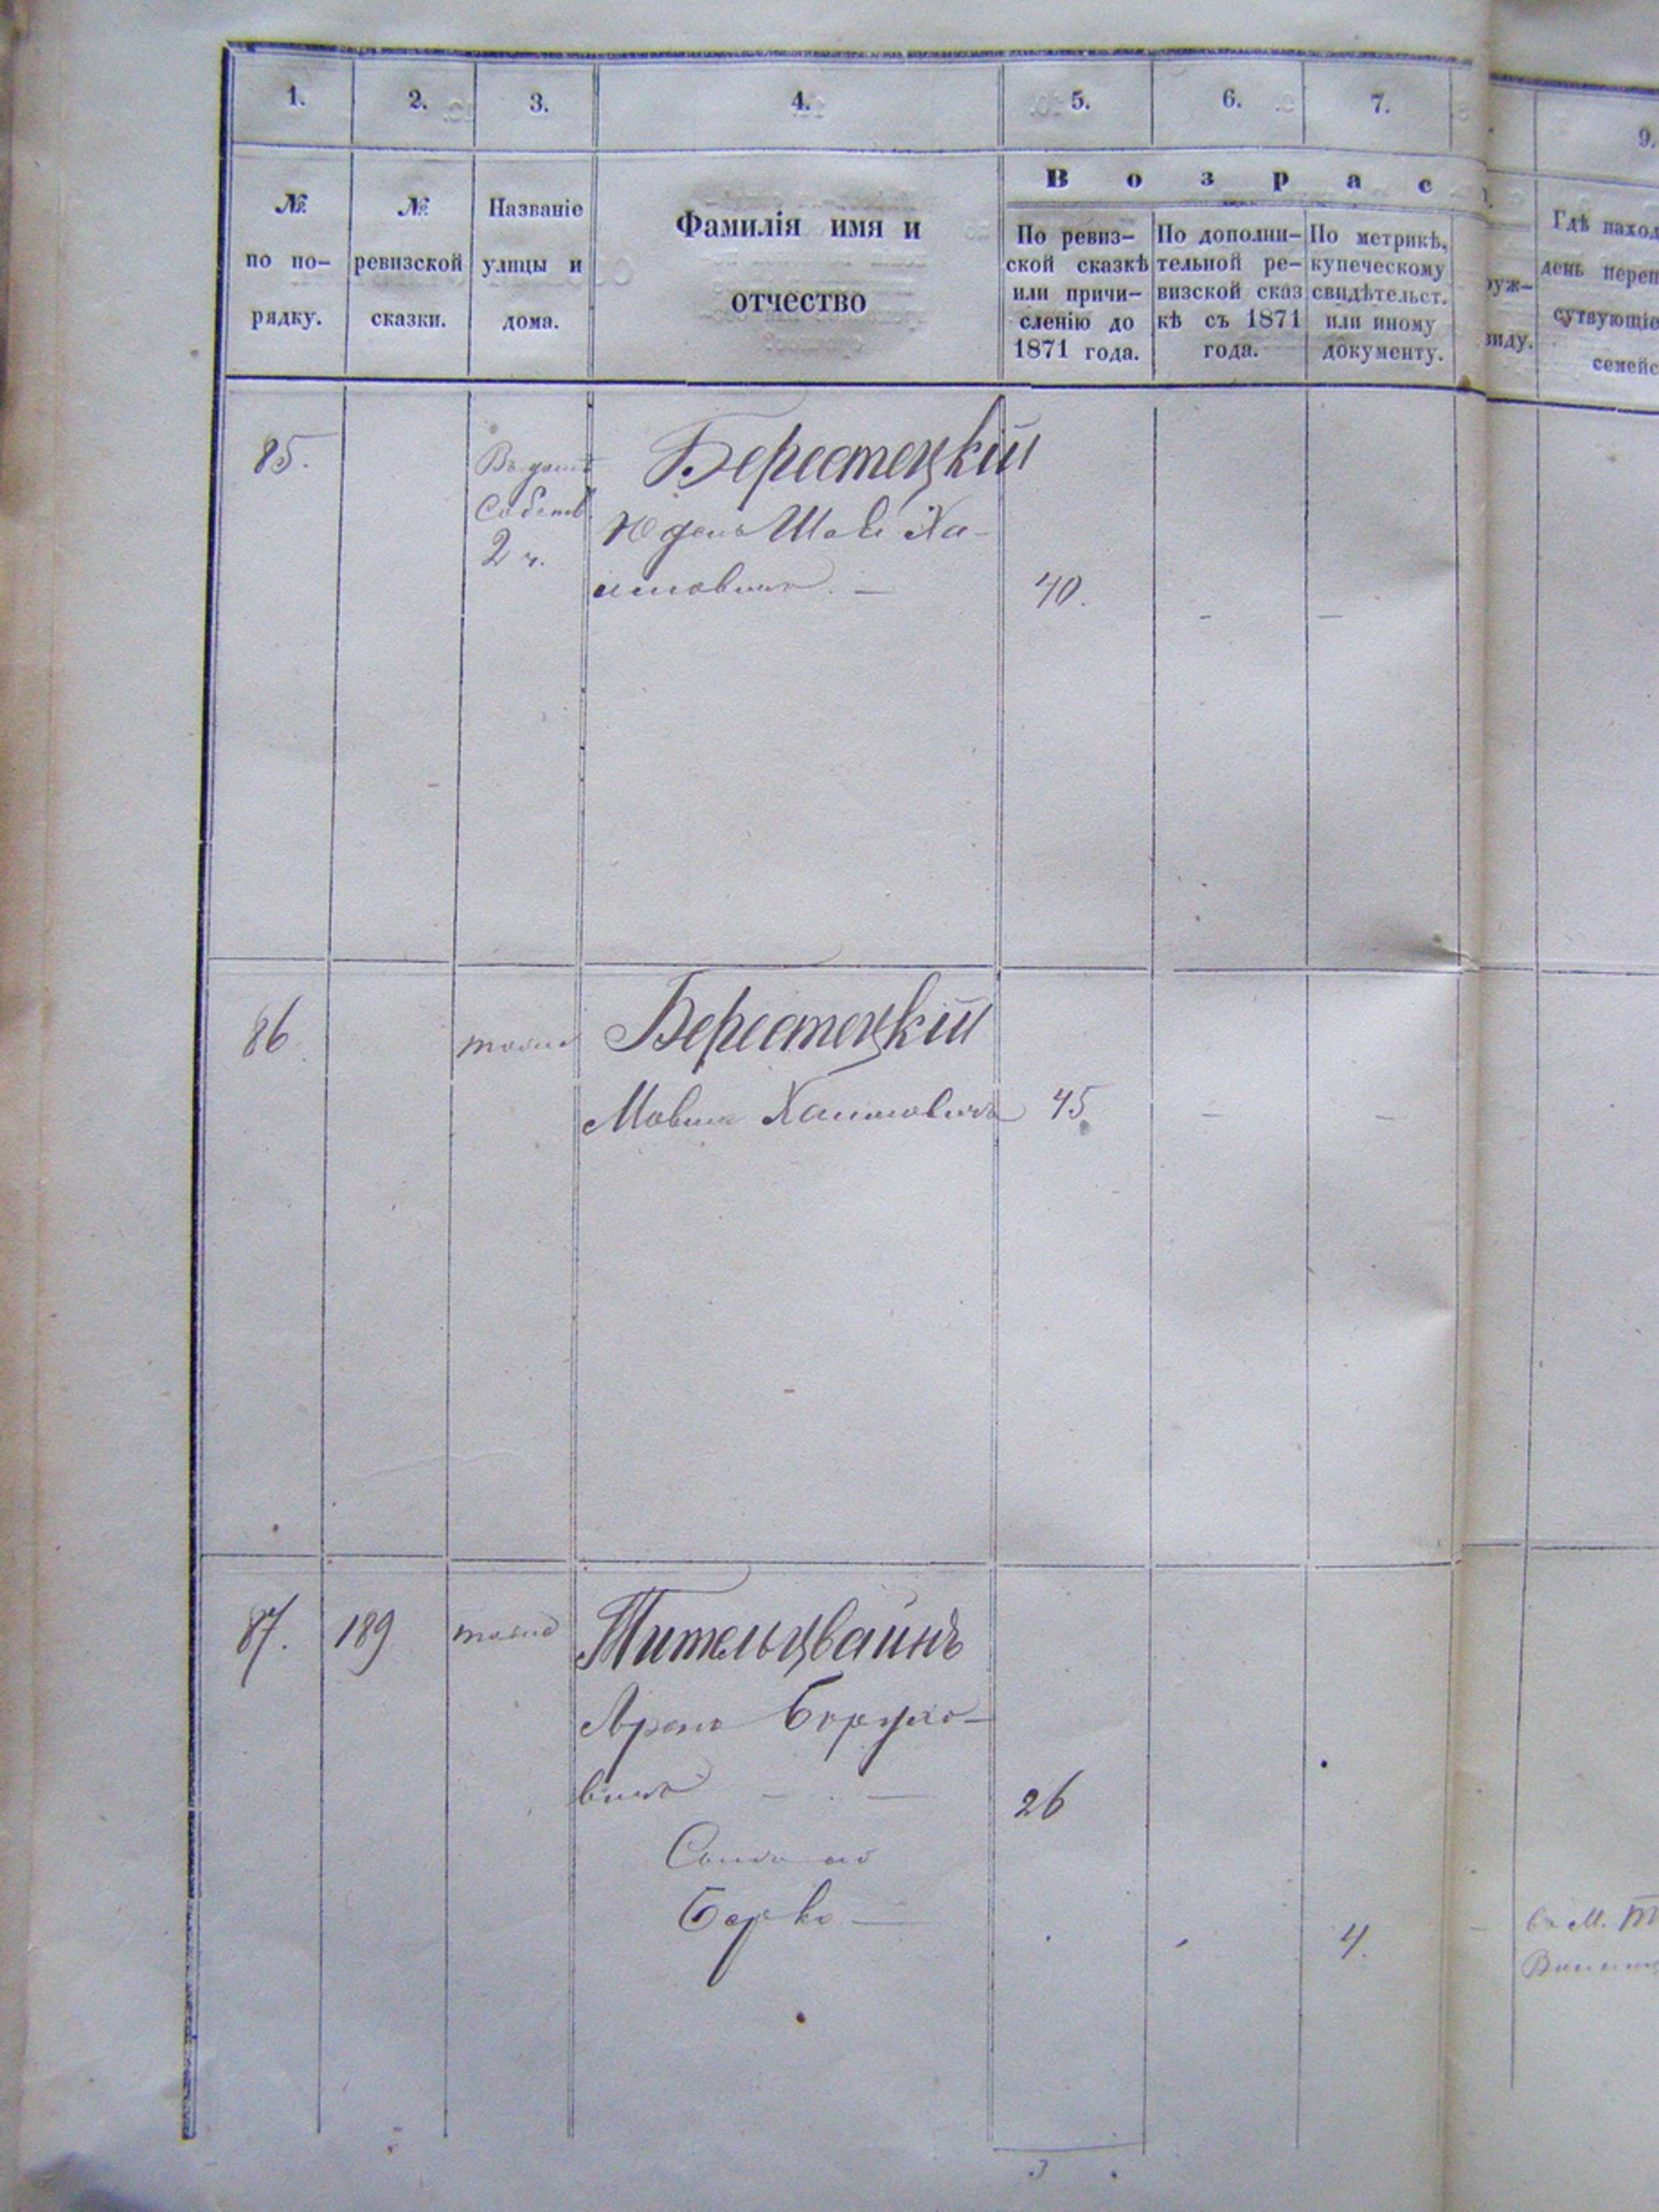 1. 2. 3. 4. 5. 6. 7. 9.
№ по по-рядку.
№ ревизской сказки.
Названіе улицы и дома.
Фамилія имя и
отчество
В о з р а с
По ревиз-
ской сказкѣ
или причи-
сленію до
1871 года.
По дополни-
тельной ре-
визской сказ
кѣ съ 1871
года.
По метрикѣ,
купеческому
свидѣтельст.
или иному
документу.
руж-
виду.
Гдѣ наход
день переп
сутвующіе
семейс
85.
Въ домѣ
Собств.
2 ч.
Берестецкій
Юдель Ха-
имовичъ. —
40. - —
86.
тоже
Берестецкій
Мовша Хаимовичъ 45. — —
87. 189 тоже
Тительцвайнъ
Аронъ Борухо-
вичъ — . — 26
Сынъ его
Берко — 4.
въ М.
3